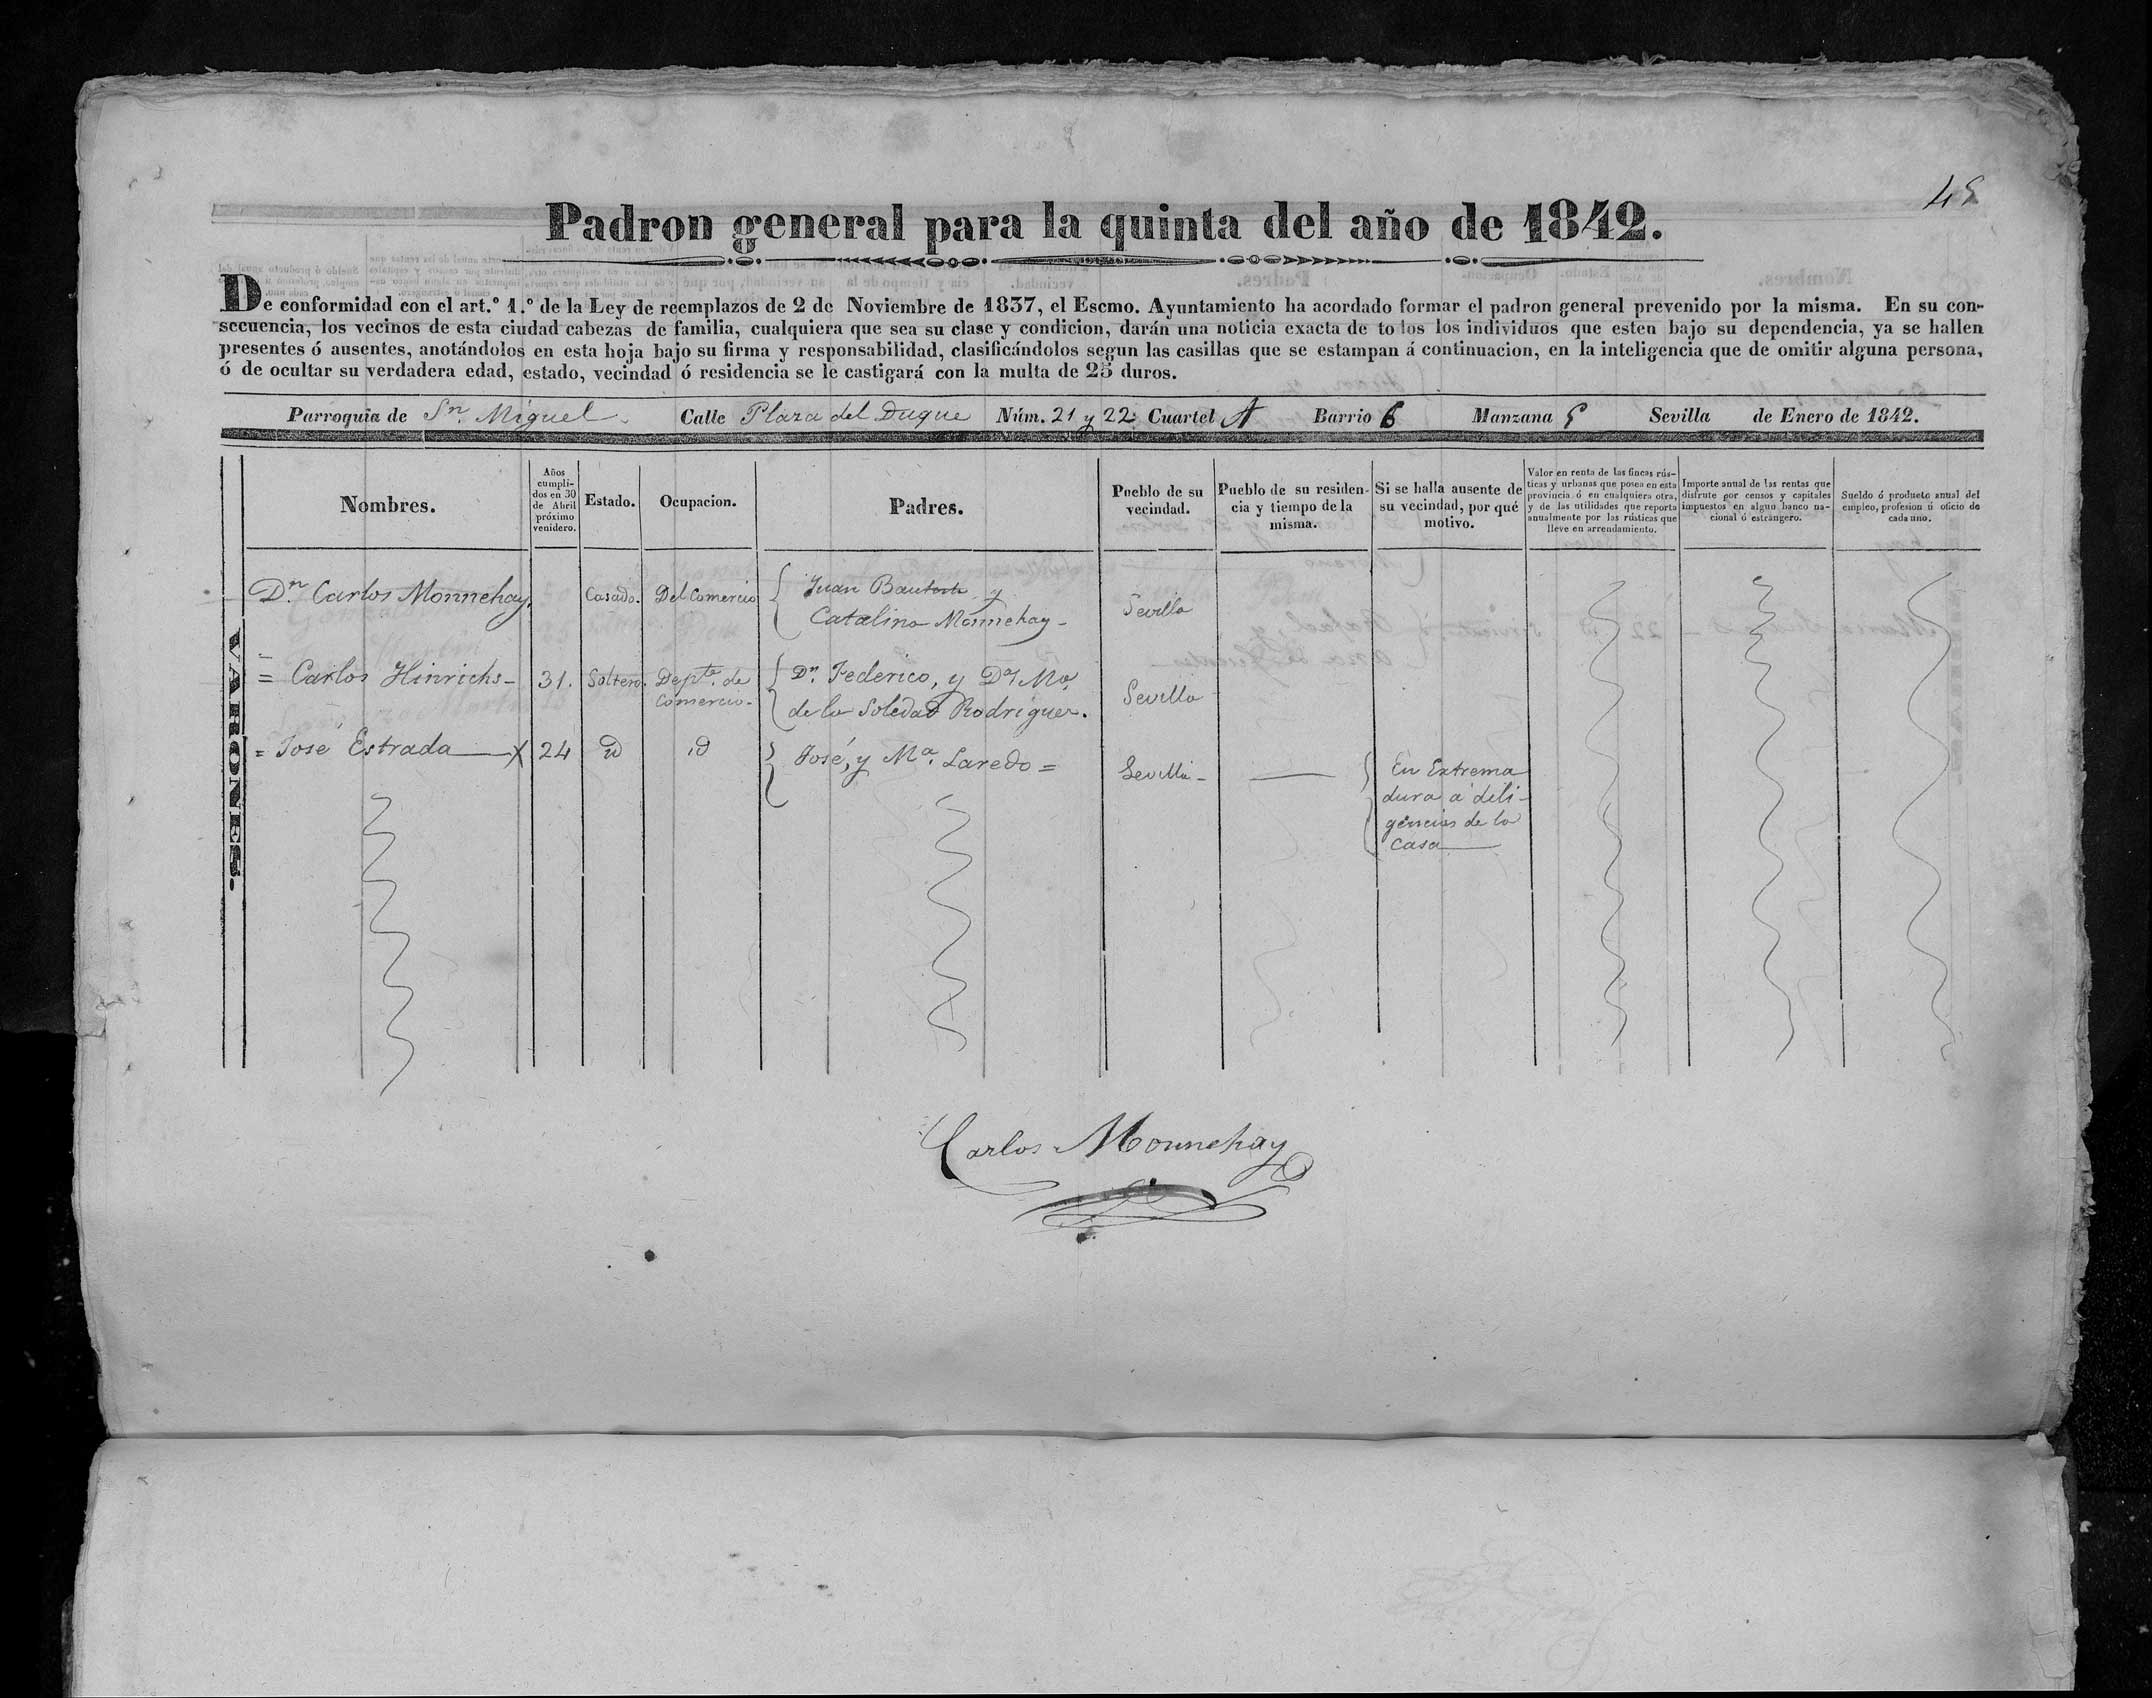 45
Padron general para la quinta del año de 1842.
De conformidad con el art.º 1.º de la Ley de reemplazos de 2 de Noviembre de 1837, el Escmo. Ayuntamiento ha acordado formar el padron general prevenido por la misma. En su con-
secuencia, los vecinos de esta ciudad cabezas de familia, cualquiera que sea su clase y condicion, darán una noticia exacta de todos los individuos que esten bajo su dependencia, ya se hallen
presentes ó ausentes, anotándolos en esta hoja bajo su firma y responsabilidad, clasificándolos segun las casillas que se estampan á continuacion, en la inteligencia que de omitir alguna persona,
ó de ocultar su verdadera edad, estado, vecindad ó residencia se le castigará con la multa de 25 duros.
Parroquia de Sn. Miguel. Calle Plaza del Duque Núm. 21 y 22: Cuartel A Barrio 6 Manzana 5 Sevilla de Enero de 1842.
VARONES.
Nombres.
Años
cumpli-
dos en 30
de Abril
próximo
venidero.
Estado.
Ocupacion.
Padres.
Pueblo de su
vecindad.
Pueblo de su residen-
cia y tiempo de la
misma.
Si se halla ausente de
su vecindad, por qué
motivo.
Valor en renta de las fincas rús-
ticas y urbanas que posea en esta
provincia ó en cualquiera otra,
y de las utilidades que reporta
anualmente por las rústicas que
lleve en arrendamiento.
Importe anual de las rentas que
disfrute por censos y capitales
impuestos en algun banco na-
cional ó estrangero.
Sueldo ó producto anual del
empleo, profesion ú oficio de
cada uno.
Dn. Carlos Monnehay. Casado. Del Comercio { Juan Bautista y
Catalina Monnehay - Sevilla
= Carlos Hinrichs - 31. Soltero. Depte. de
Comercio. { Dn. Federico, y Da. Ma.
de la Soledad Rodriguez. Sevilla
= José Estrada — X 24 id id } José, y Ma. Laredo = Sevilla - — { En Extrema
dura a dili-
gencias de la
Casa —
Carlos Monnehay